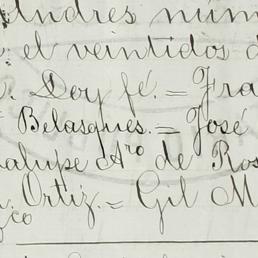 Andres núm
el veintidos d
Doy fé. = Fra
Belasques. = José
alupe Aro de Ros
Ortiz. = Gil M
co